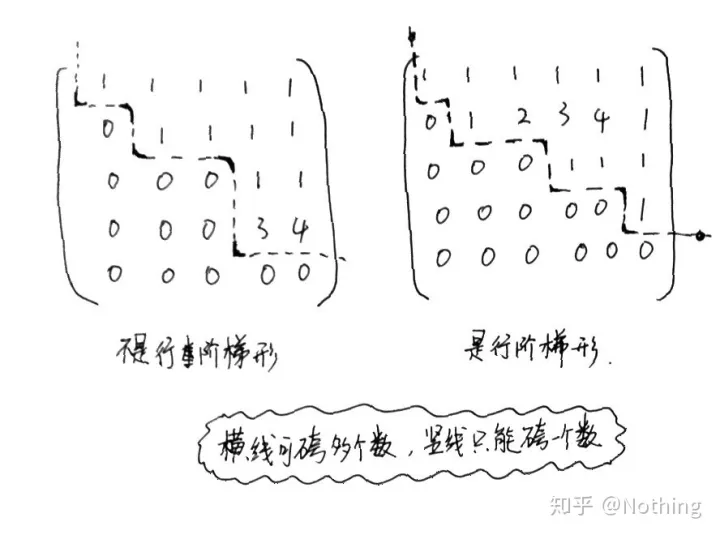 1 1 1 1 1
0 1 1 1 1
0 0 0 1 1
0 0 0 3 4
0 0 0 0 0
不是行阶梯形
1 1 1 1 1 1
0 1 2 3 4 1
0 0 0 1 1 1
0 0 0 0 0 1
0 0 0 0 0 0
是行阶梯形.
横线可砖多个数，竖线只能砖一个数
知乎 @Nothing